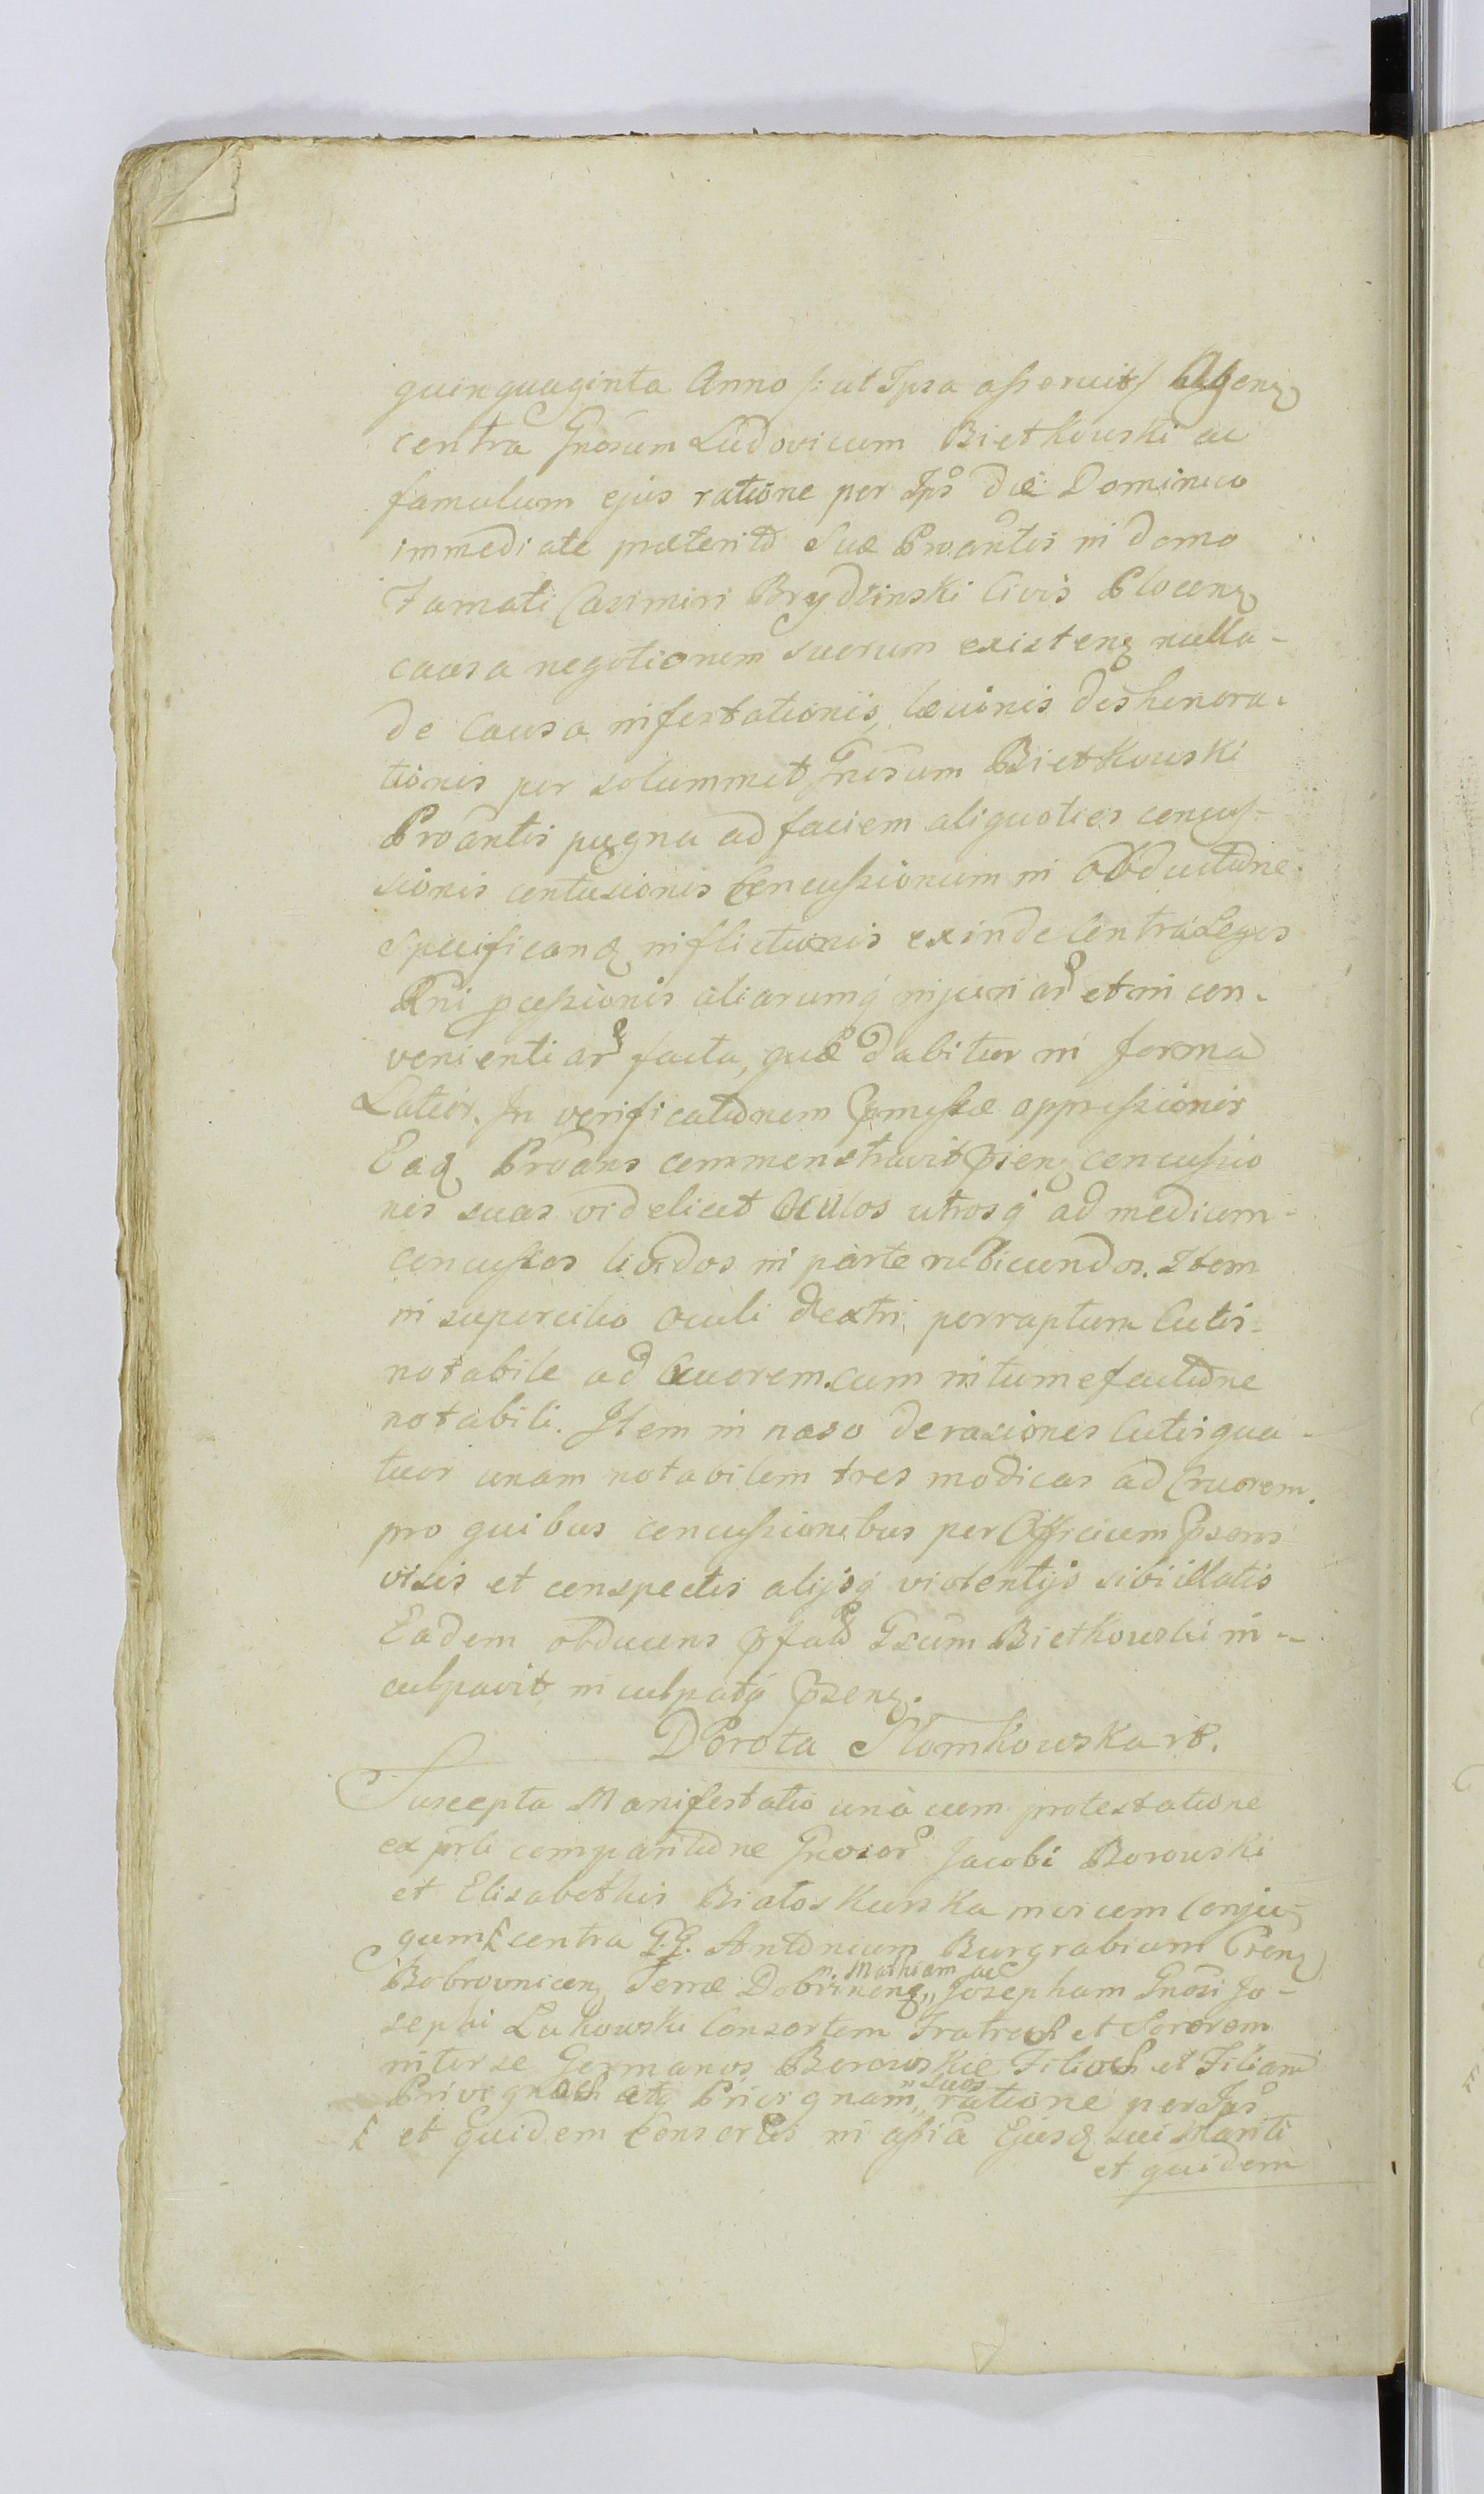 quinquaginta Anno /: ut Ipsa asseruit / Agenꝫ
contra Gnosum Ludovicum Bietkowski ac
famulum ejus ratione per Ips̊ die Dominico
immediate præterito Suæ Proantis in domo
Famati Casimiri Brydzinski Civis Plocenꝫ
causa negotionem suorum existenꝫ nulla-
de Causa infestationis, læsionis deshonora-
tionis per solummet Gnosum Bietkowski
Proantis pugna ad faciem aliquoties concus-
sionis contusionis Concussionum in obductione
specificanꝫ inflictionis exinde Contra Leges
Rni pcessionis aliarumq́ injuriaꝝ et in con-
venientiaꝝ facta, quæ dabitur in forma
Latior. In verificationem Pmissæ oppressionis
Eadꝫ Proans commonstravit Psenꝫ concussio
nes suas videlicet Oculos utrosq́ ad medium-
concussos lividos in parte rubicundos. Item
in supercilio Oculi dextri perruptum Cutis-
notabile ad Cruorem cum intumefactione
notabili. Item in naso derasiones Cutis qua-
tuor unam notabilem tres modicas ad Cruorem.
pro quibus concussionibus per Officium Psens
visis et conspectis alijsq́ violentijs sibi illatis
Eadem obducens Pfatũ Gsum Bietkowski in-
culpavit, inculpatq́ Psenꝫ.
Dorota Słomkowska rę.
Suscepta Manifestatio unà cum protestatione
ex psli comparitione Gnosoꝝ Jacobi Borowski
et Elisabethis Białoskurska invicem Conju-
gum contra G.G. Antonium Burgrabium Crenꝫ
Bobrovnicenꝫ Terræ Dobrinenꝫ,, Josepham Gnosi Jo-
" Mathiam ac
sephi Lukowski Consortem Fratres et Sororem
inter se Germanos Borowskie Filios et Filiam
Privignos atq́ Privignam,, ratione per Ips̊
" suos
et quidem Consortis in assia Ejusdꝫ sui Mariti
et quidem